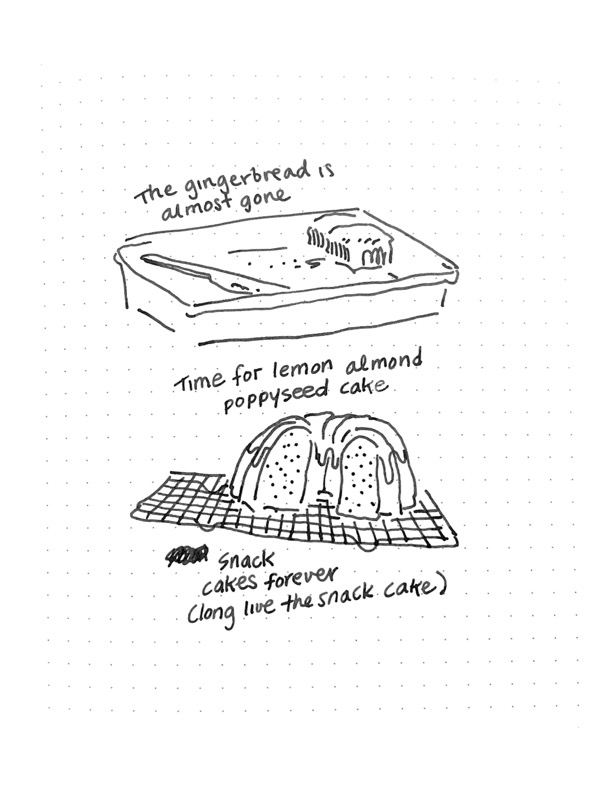 The gingerbread is
almost gone
Time for lemon almond
poppyseed cake
snack
cakes forever
(long live the snack cake)